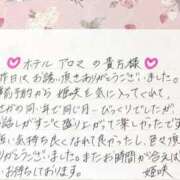 ホテル アロマ の貴方様
昨日は、お誘い頂きありがとうございました。
事前予約から 姫咲を気に入ってくれて、
さかの同い年で同じ月…びっくりでしたが
お話しがすごく盛り上がって楽しかったです
気持ち良くなれて良かったし、色々頂
ありがとうございました。またお時間が合えば
お待ちしております。 姫咲